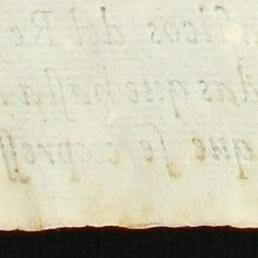 ficos del Re
das que hasta
que se expres